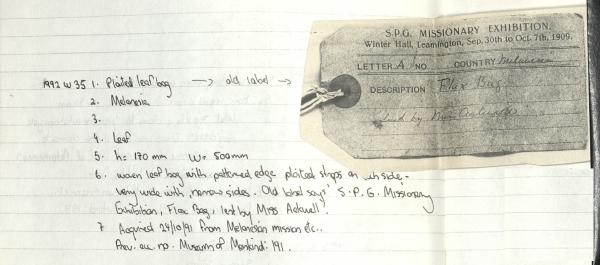 S.P.G. MISSIONARY EXHIBITION,
Winter Hall, Leamington, Sep. 30th to Oct. 7th, 1909.
LETTER A NO. COUNTRY Melanesia
DESCRIPTION Flax Bag
Lent by Miss
1992 W 35 1. Plaited leaf bag → old label →
2. Melanesia
3.
4. Leaf
5. h= 170 mm W= 500mm
6. woven leaf bag with patterned edge plaited straps on side -
very wide with narrow sides. Old label says 'S.P.G. Missionary
Exhibition, Flax Bag, lent by Miss Ackwell'.
7 Acquired 24/10/91 from Melanesian mission etc..
Prev. acc. no. Museum of Mankind: 191.